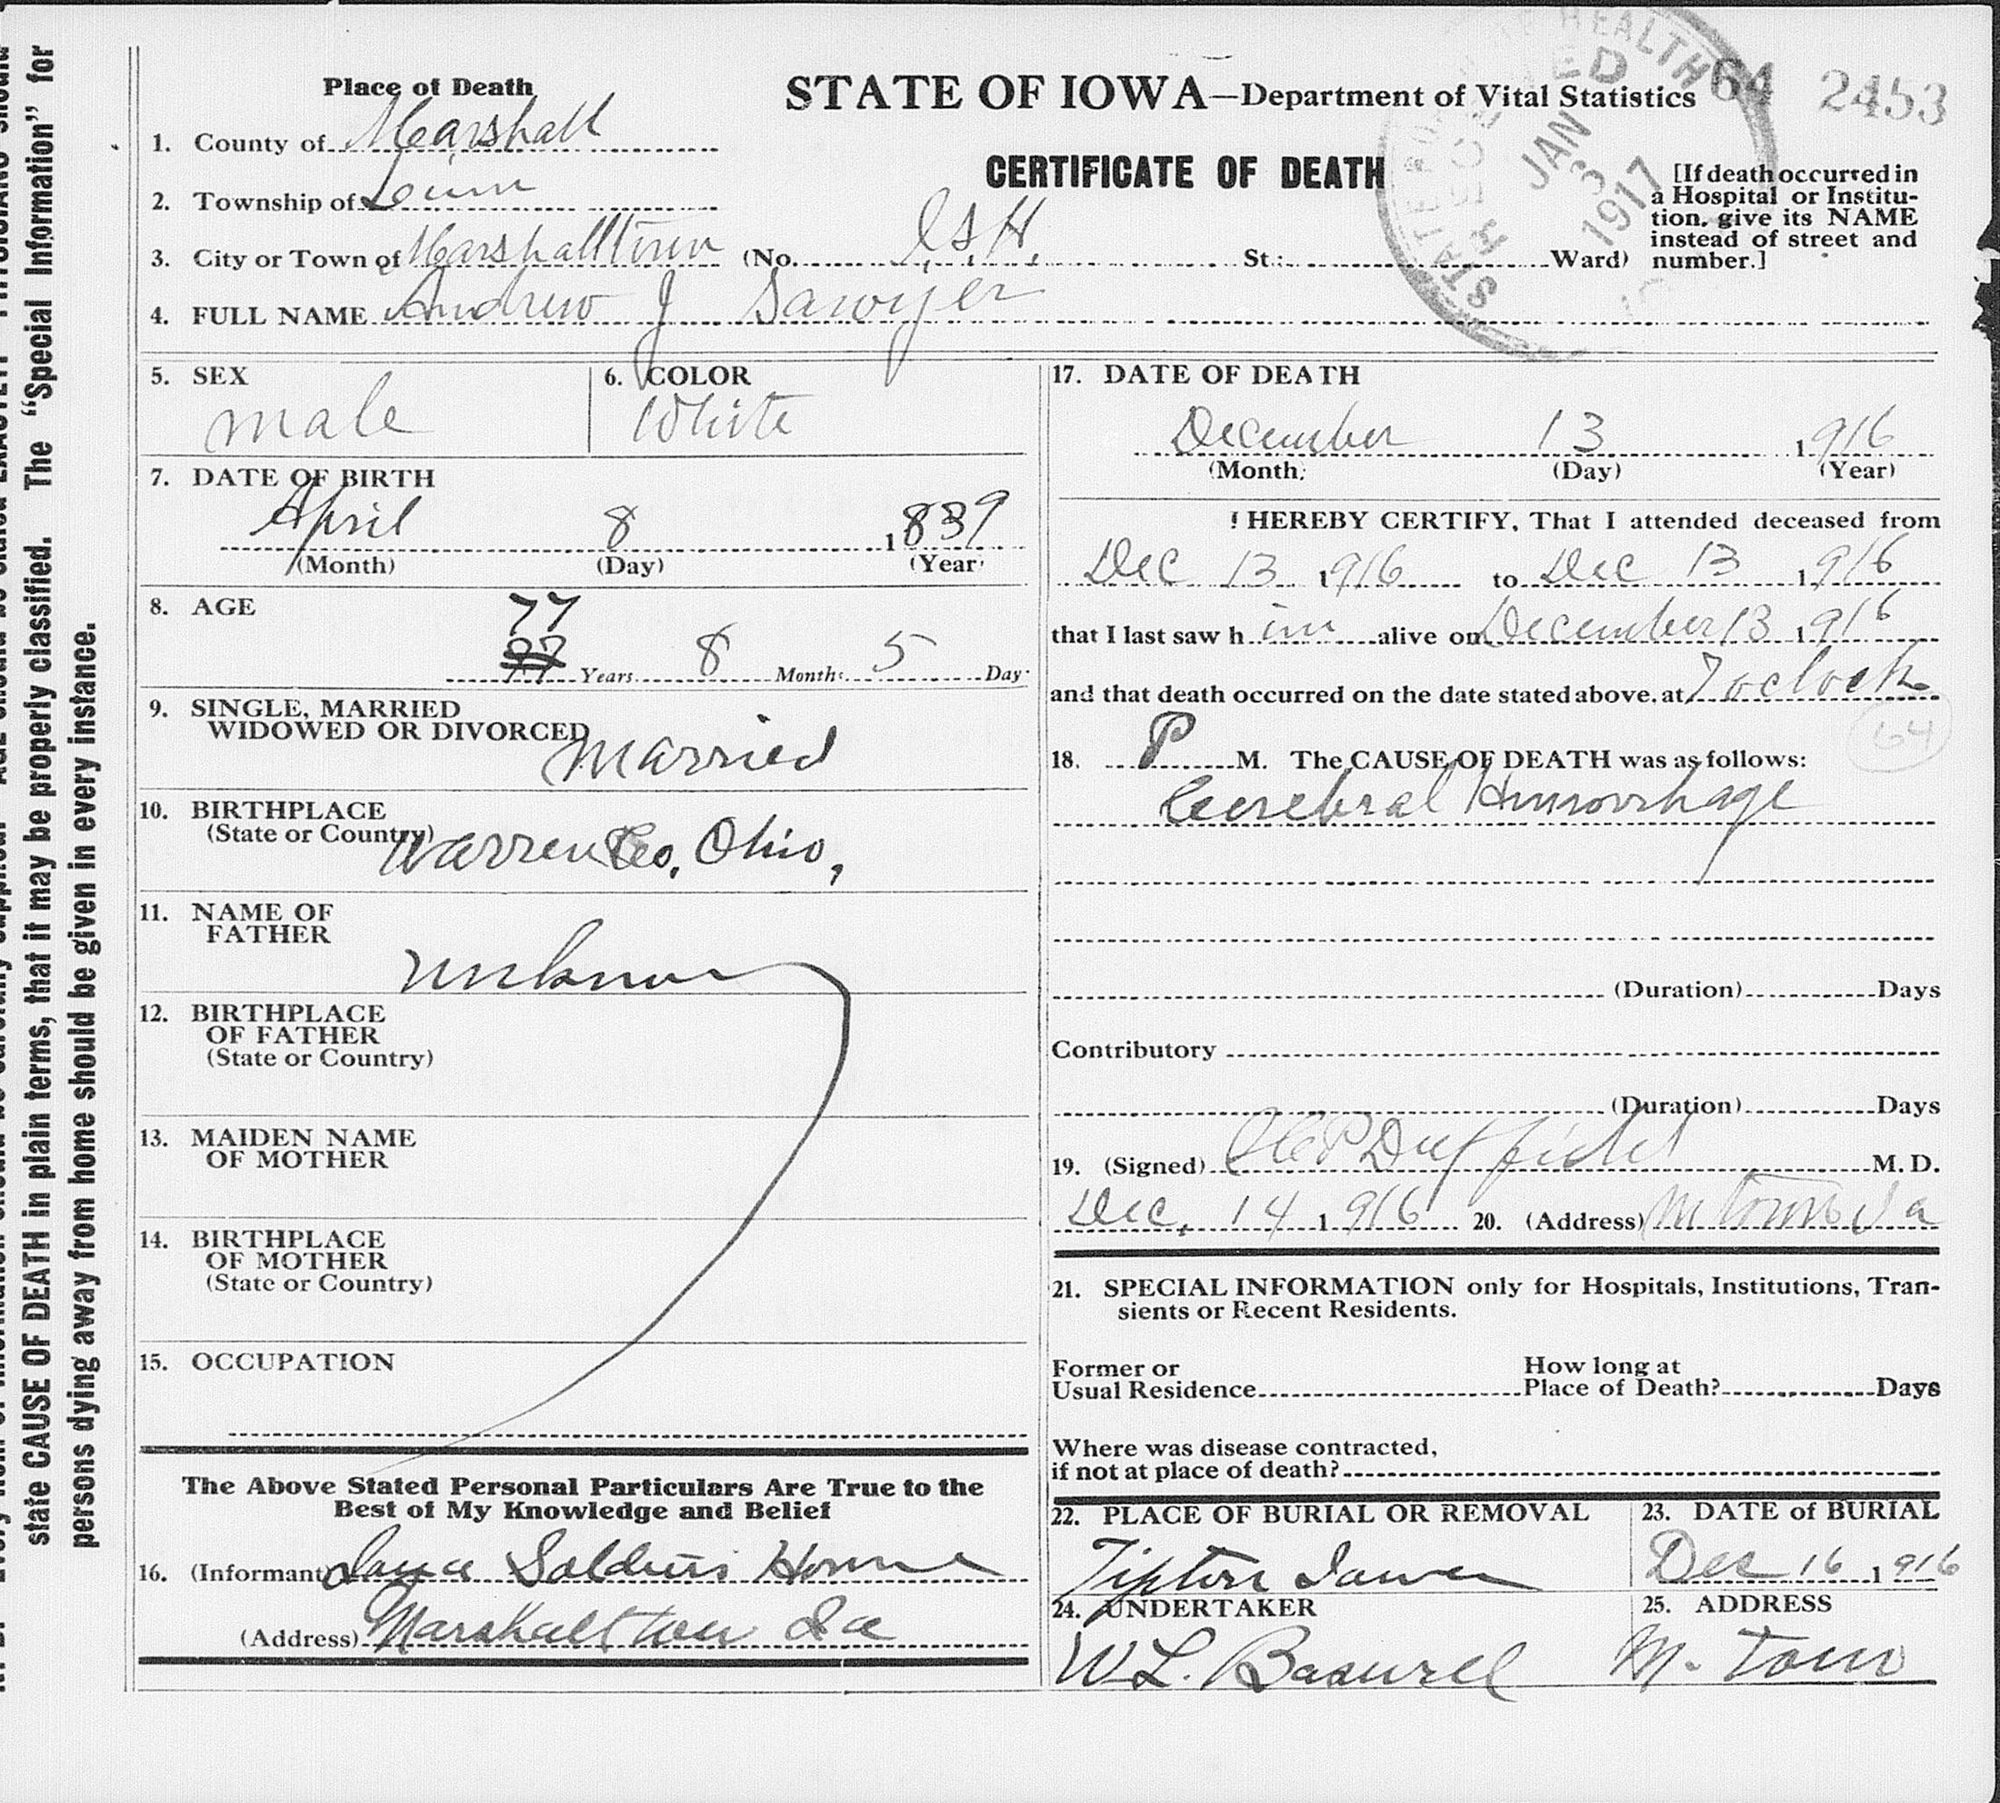 STATE OF IOWA—Department of Vital Statistics
64 2453
CERTIFICATE OF DEATH
STATE HEALTH
RECEIVED
JAN 3 1917
[If death occurred in
a Hospital or Institu-
tion, give its NAME
instead of street and
number.]
Place of Death
1. County of Marshall
2. Township of
3. City or Town of Marshalltown (No. I.S.H. St.; Ward)
4. FULL NAME Andrew J Sawyer
5. SEX
male
6. COLOR
White
7. DATE OF BIRTH
April 8 1839
(Month) (Day) (Year)
8. AGE
77
Years 8 Months 5 Day
9. SINGLE, MARRIED
WIDOWED OR DIVORCED
Married
10. BIRTHPLACE
(State or Country)
Warren Co, Ohio,
11. NAME OF
FATHER
unknown
12. BIRTHPLACE
OF FATHER
(State or Country)
13. MAIDEN NAME
OF MOTHER
14. BIRTHPLACE
OF MOTHER
(State or Country)
15. OCCUPATION
The Above Stated Personal Particulars Are True to the
Best of My Knowledge and Belief
16. (Informant) Iowa Soldiers Home
(Address) Marshalltown Ia
17. DATE OF DEATH
December 13 1916
(Month) (Day) (Year)
I HEREBY CERTIFY, That I attended deceased from
Dec 13 1916 to Dec 13 1916
that I last saw h im alive on December 13 1916
and that death occurred on the date stated above, at 7 oclock
64
18. P M. The CAUSE OF DEATH was as follows:
Cerebral Hemorrhage
(Duration) Days
Contributory
(Duration) Days
19. (Signed) Duffield M. D.
Dec, 14 1916 20. (Address) M town Ia
21. SPECIAL INFORMATION only for Hospitals, Institutions, Tran-
sients or Recent Residents.
Former or
Usual Residence
How long at
Place of Death? Days
Where was disease contracted,
if not at place of death?
22. PLACE OF BURIAL OR REMOVAL
Tipton Iowa
23. DATE of BURIAL
Dec 16 1916
24. UNDERTAKER
W L.
25. ADDRESS
M. Town
state CAUSE OF DEATH in plain terms, that it may be properly classified. The "Special Information" for
persons dying away from home should be given in every instance.